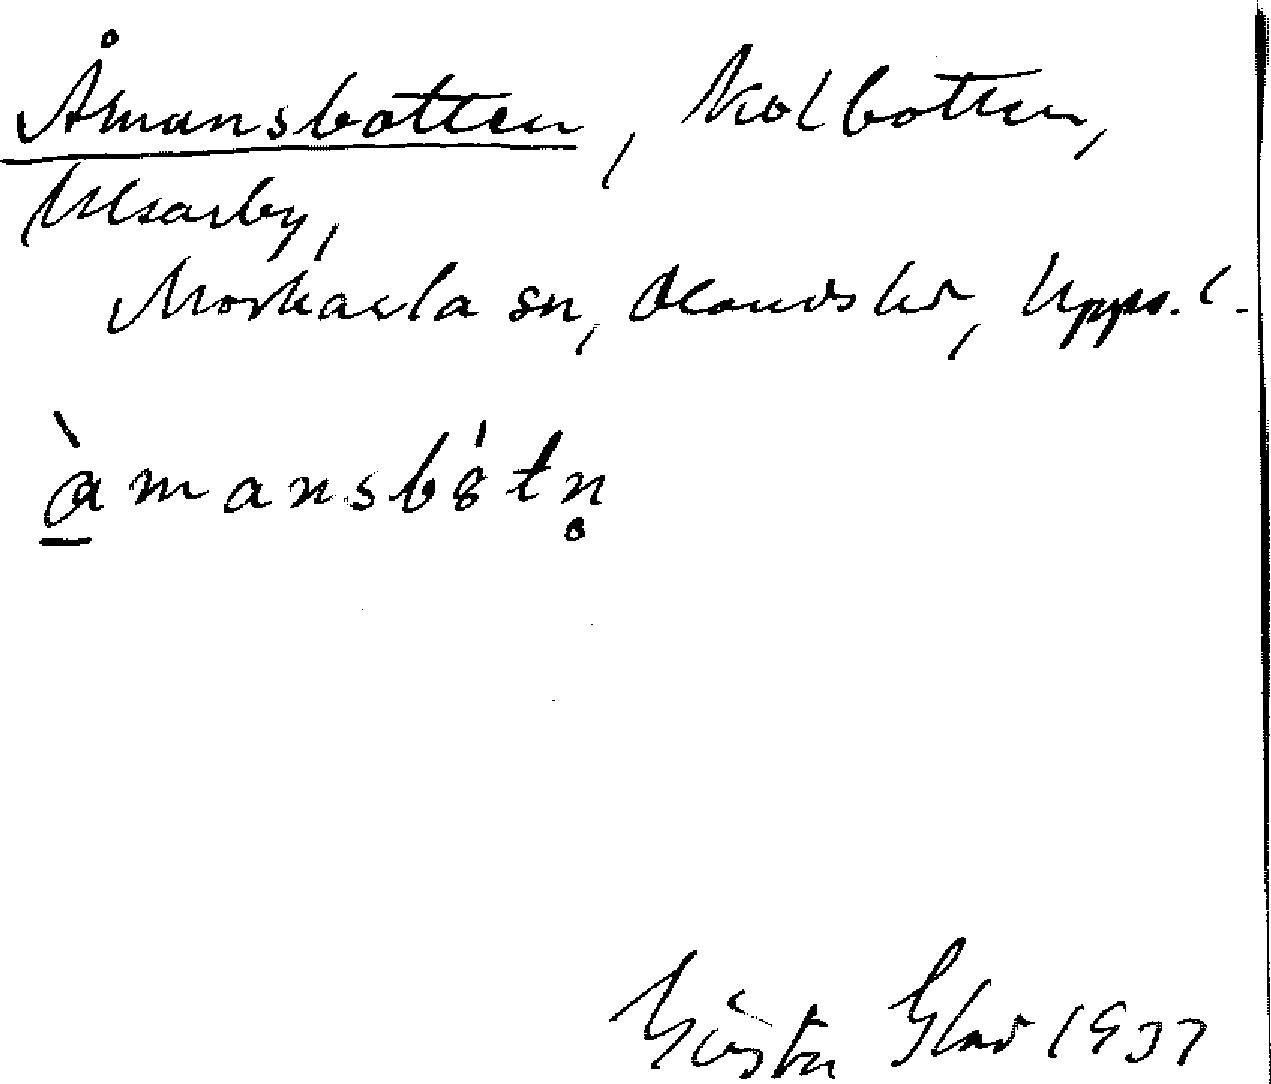 Åmansbotten, Kolbotten,
Ulsarby,
Morkarla sn, Olands hd, Upps. l.
åmansbòtn̥
Gösta Glad 1937